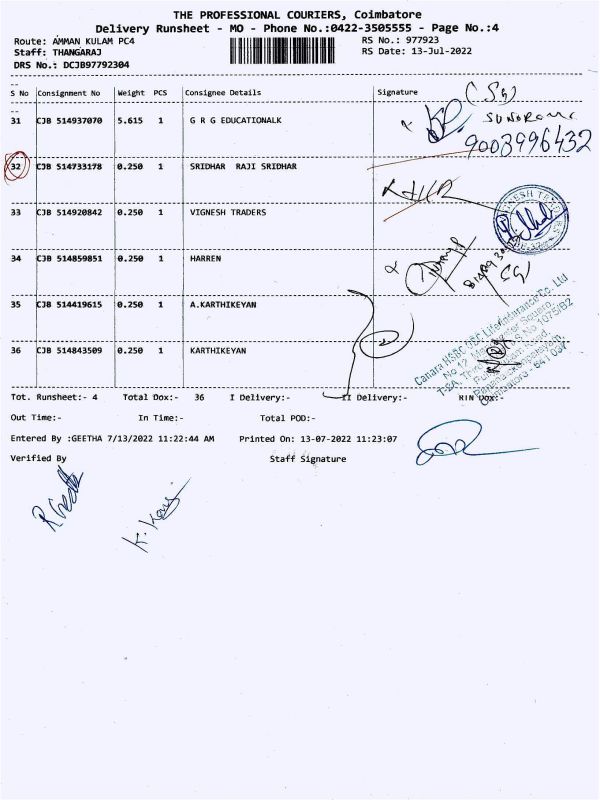 THE PROFESSIONAL COURIERS, Coimbatore
Delivery Runsheet - MO - Phone No.:0422-3505555 - Page No.:4
Route: AMMAN KULAM PC4 RS No.: 977923
Staff: THANGARAJ RS Date: 13-Jul-2022
DRS No.: DCJB97792304
S No Consignment No Weight PCS Consignee Details Signature
31 CJB 514937070 5.615 1 G R G EDUCATIONALK
(Sg)
9003996432
32 CJB 514733178 0.250 1 SRIDHAR RAJI SRIDHAR
33 CJB 514920842 0.250 1 VIGNESH TRADERS
34 CJB 514859851 0.250 1 HARREN
35 CJB 514419615 0.250 1 A.KARTHIKEYAN
36 CJB 514843509 0.250 1 KARTHIKEYAN
Canara HSBC OBC Life Insurance Co. Ltd
Coimbatore - 641 037
Tot. Runsheet:- 4 Total Dox:- 36 I Delivery:- II Delivery:- RIN Dox:-
Out Time:- In Time:- Total POD:-
Entered By :GEETHA 7/13/2022 11:22:44 AM Printed On: 13-07-2022 11:23:07
Verified By Staff Signature